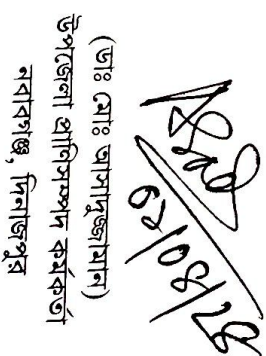 (ডাঃ মোঃ আসাদুজ্জামান)
উপজেলা প্রাণিসম্পদ কর্মকর্তা
নবাবগঞ্জ, দিনাজপুর